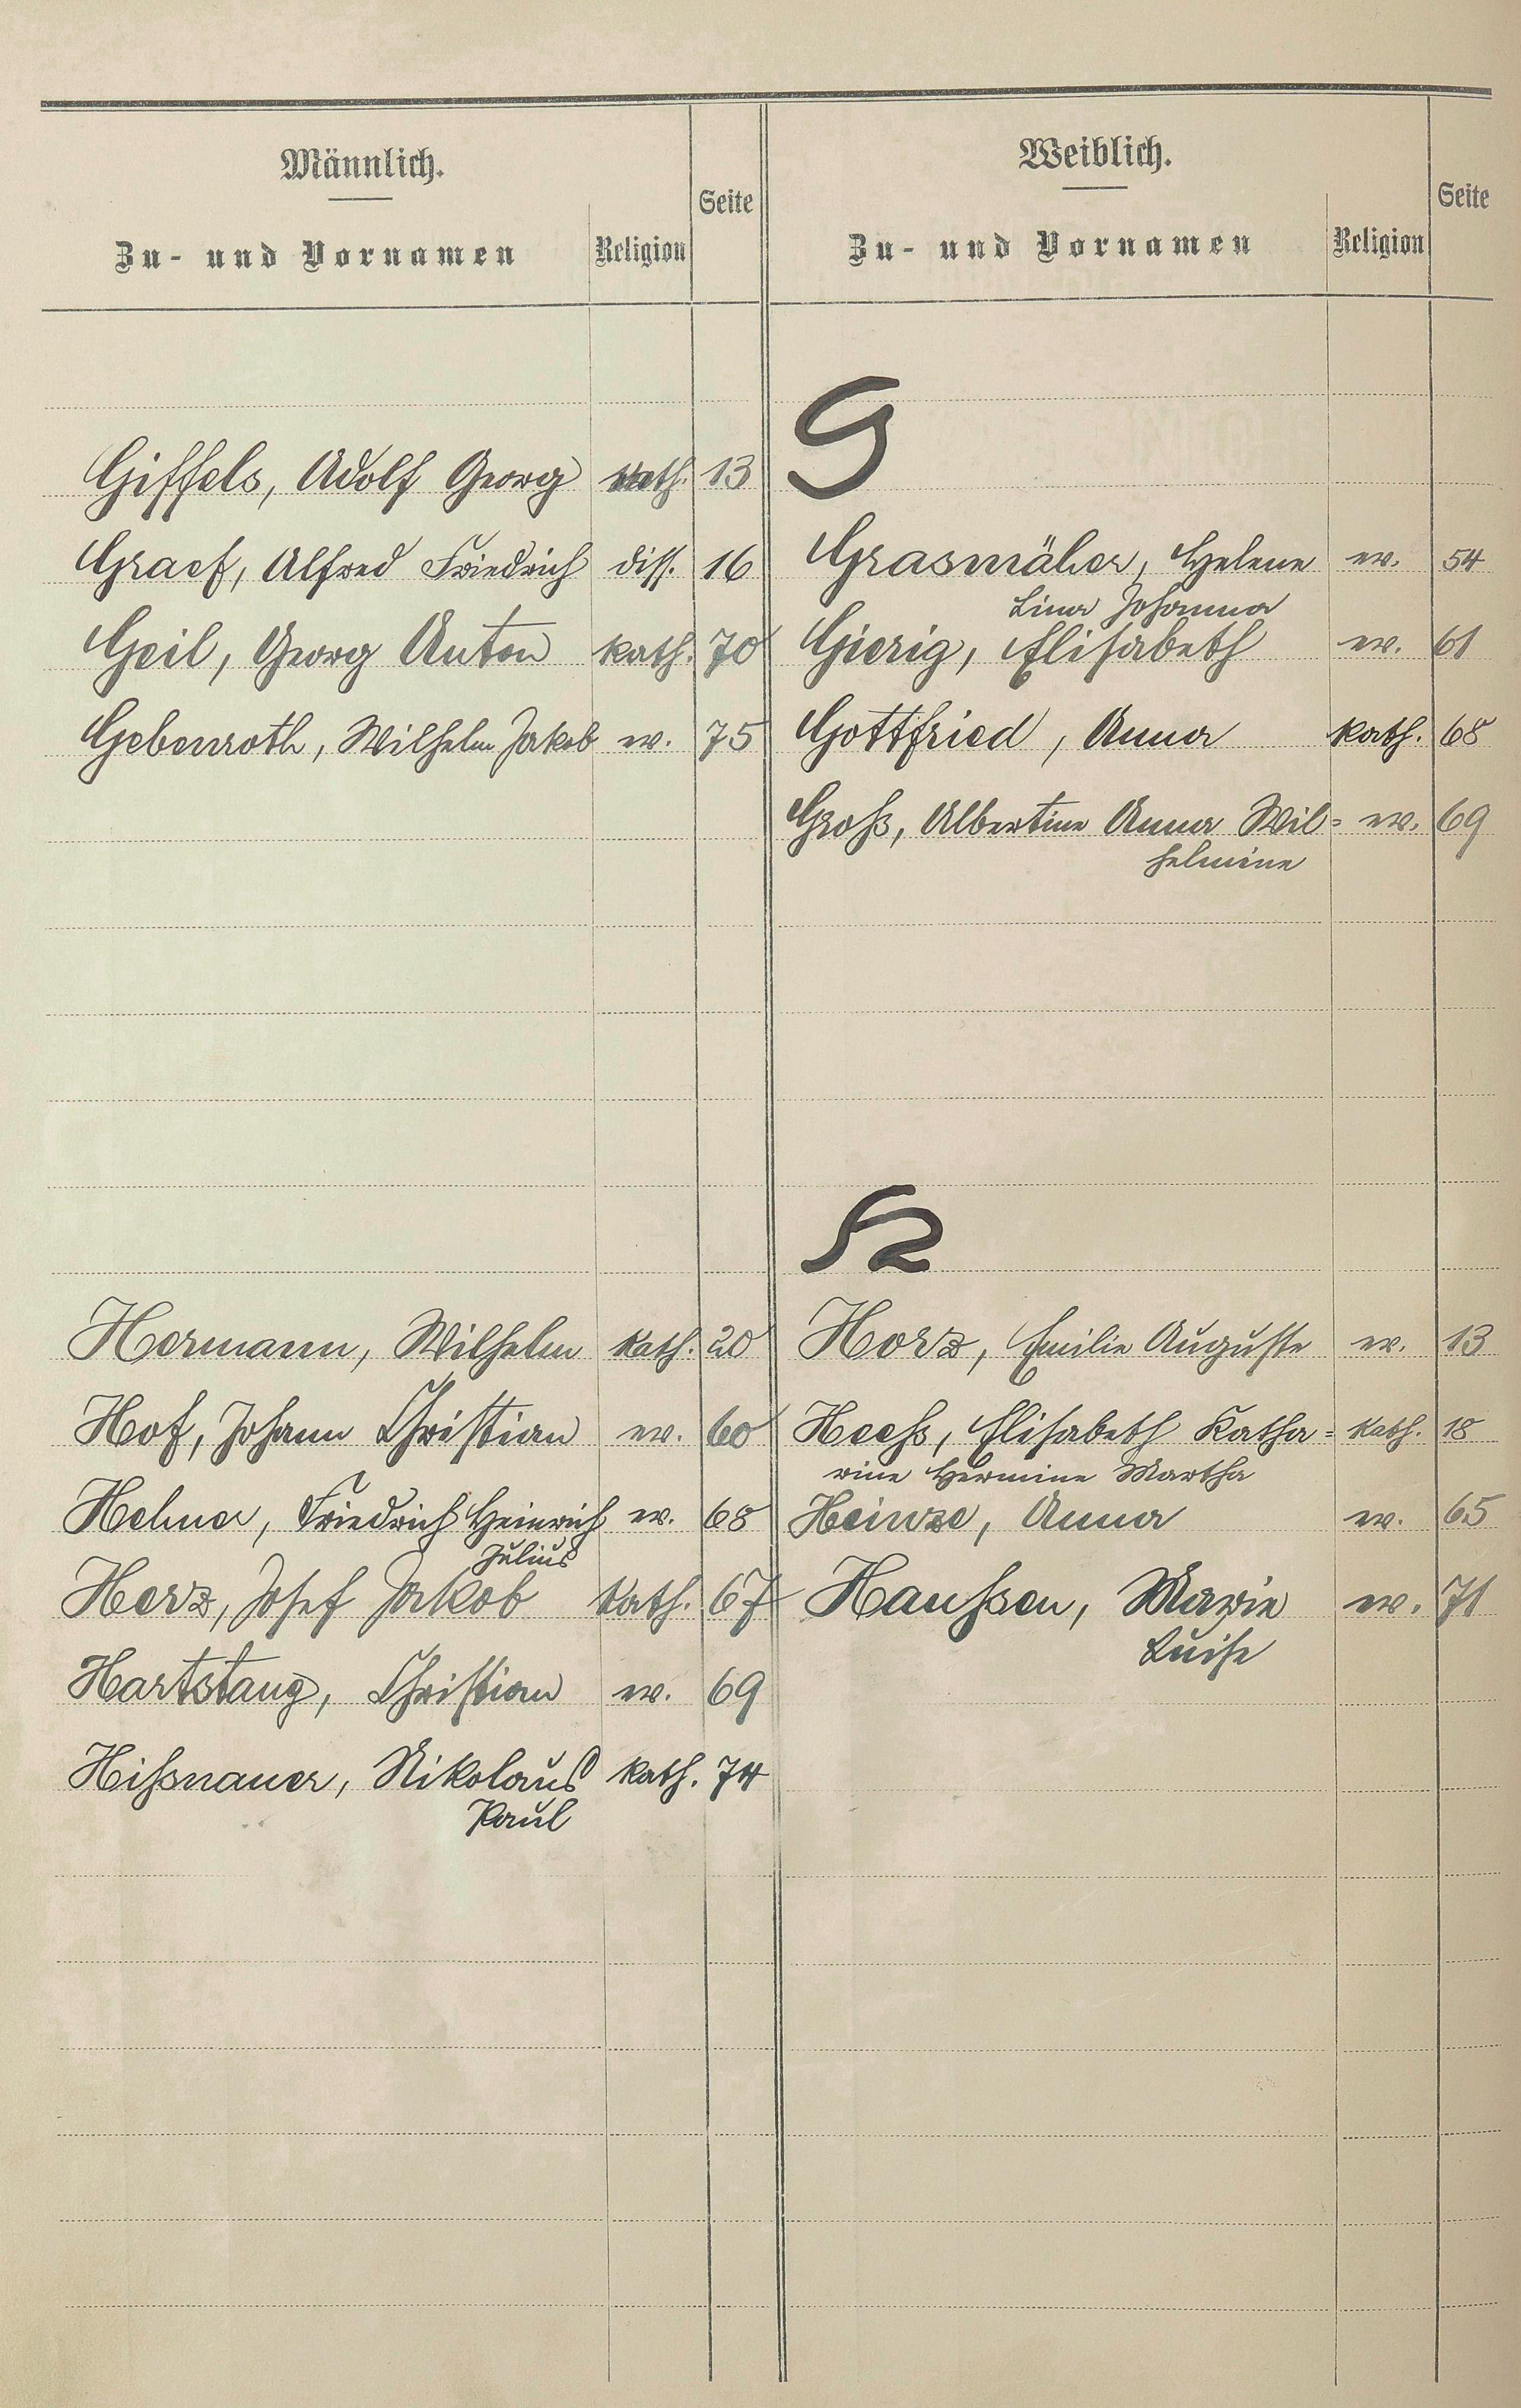 Männlich.
Zu- und Vornamen
Religion
Seite
Weiblich.
Zu- und Vornamen
Religion
Seite
G
Giffels, Adolf Georg kath. 13
Graef, Alfred Friedrich diss. 16
Geil, Georg Anton kath. 70
Gebenroth, Wilhelm Jakob ev. 75
Grasmäher, Helene ev. 54
Lina Johanna
Gierig, Elisabeth ev. 61
Gottfried, Anna kath. 68
Groß, Albertine Anna Wil= ev. 69
helmine
H
Hermann, Wilhelm kath. 20
Hof, Johann Christian ev. 60
Hehner, Friedrich Heinrich ev. 68
Julius
Herz, Josef Jakob kath. 67
Hartstang, Christian ev. 69
Hißnauer, Nikolaus kath. 74
Paul
Horz, Emilie Auguste ev. 13
Heeß, Elisabeth Katha= kath. 18
rine Hermine Martha
Heinze, Anna ev. 65
Haußen, Marie ev. 71
Luise